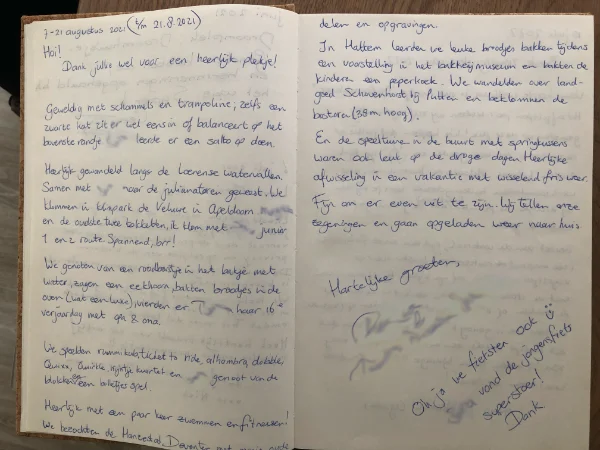 7-21 augustus 2021 (t/m 21.8.2021)
Hoi!
Dank jullie wel voor een heerlijk plekje!
Geweldig met schommels en trampoline; zelfs een
zwarte kat zit er wel eens in of balanceert op het
bovenste randje leerde er een salto op doen.
Heerlijk gewandeld langs de Loenense watervallen.
Samen met naar de julianatoren geweest. We
klommen in klimpark de Veluwe in Apeldoorn
en de oudste twee tokkelden, ik klom met junior
1 en 2 route Spannend, brr!
We genoten van een roodborstje in het bakje met
water, zagen een eekhoorn, bakten broodjes in de
oven (wat een luxe), vierden er T haar 16e
verjaardag met opa & oma.
We speelden rummikub, ticket to ride, alhambra, dobble,
Qwixx, Qwirkle, nijntje kwartet en genoot van de
blokken en balletjes spel.
Heerlijk met een paar keer zwemmen en fitnessen!
We bezochten de Hanzestad Deventer met mooie oude
delen en opgravingen.
In Hattem leerden we leuke broodjes bakken tijdens
een voorstelling in het bakkerijmuseum en bakten de
kinderen een peperkoek. We wandelden over land-
goed Schovenhorst bij Putten en beklommen de
bostoren (38 m. hoog).
En de speeltuin in de buurt met springkussens
waren ook leuk op de droge dagen. Heerlijke
afwisseling in een vakantie met wisselend fris weer.
Fijn om er even uit te zijn. Wij tellen onze
zegeningen en gaan opgeladen weer naar huis
Hartelijke groeten,
Oh ja we fietsten ook
vond de jongensfiets
superstoer!
Dank